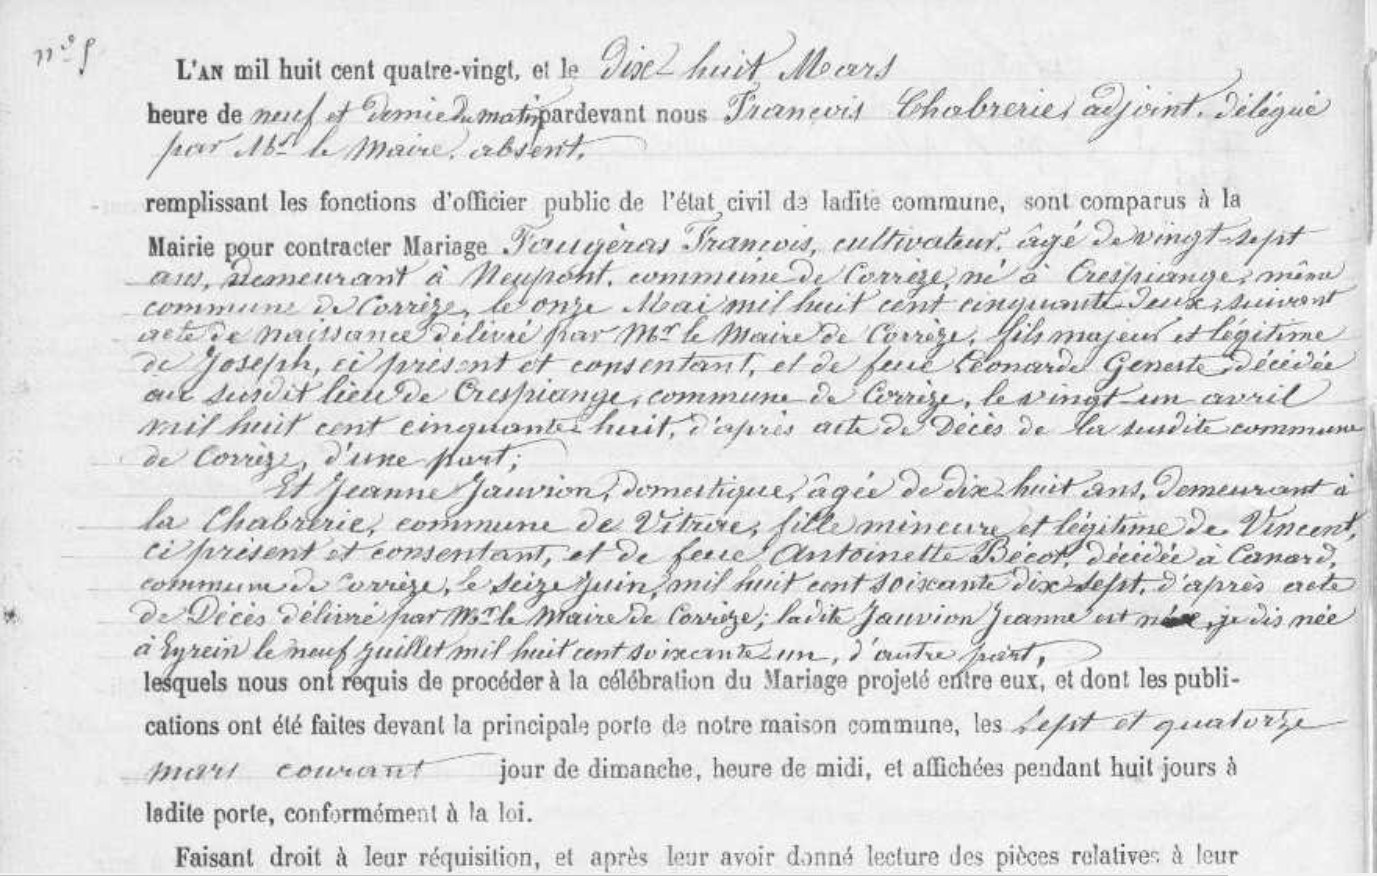 n° 5
L'AN mil huit cent quatre-vingt, et le Dix huit Mars
heure de neuf et demie du matin pardevant nous François Chabrerie, adjoint, délégué
par Mr le Maire, absent,
remplissant les fonctions d'officier public de l'état civil de ladite commune, sont comparus à la
Mairie pour contracter Mariage Faugèras François, cultivateur, âgé de vingt-sept
ans, demeurant à Neupont, commune de Corrèze, né à Crespiange, même
commune de Corrèze, le onze Mai mil huit cent cinquante deux, suivant
acte de naissance délivré par Mr le Maire de Corrèze, fils majeur et légitime
de Joseph, ci présent et consentant, et de feue Léonarde Geneste, décédée
au susdit lieu de Crespiange, commune de Corrèze, le vingt-un avril
mil huit cent cinquante huit, d'après acte de Décès de la susdite commune
de Corrèze, d'une part;
Et Jeanne Jauvion, domestique, âgée de dix-huit ans, demeurant à
la Chabrerie, commune de Vitrac, fille mineure et légitime de Vincent,
ci présent et consentant, et de feue Antoinette Bécot, décédée à Canard,
commune de Corrèze, le seize Juin, mil huit cent soixante dix-sept, d'après acte
de Décès délivré par Mr le Maire de Corrèze; ladite Jauvion Jeanne est née, je dis née
à Eyrein le neuf juillet mil huit cent soixante-un, d'autre part,
lesquels nous ont requis de procéder à la célébration du Mariage projeté entre eux, et dont les publi-
cations ont été faites devant la principale porte de notre maison commune, les Sept et quatorze
mars courant jour de dimanche, heure de midi, et affichées pendant huit jours à
ladite porte, conformément à la loi.
Faisant droit à leur réquisition, et après leur avoir donné lecture des pièces relatives à leur